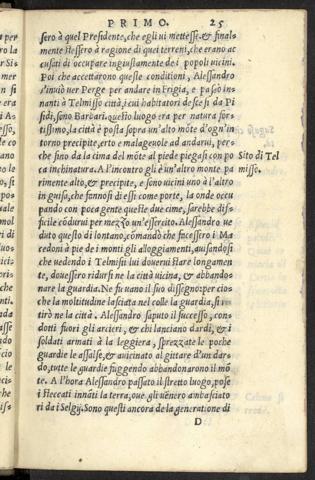 PRIMO. 25
sero à quel Presidente, che egli ui mettesse: & final
mente stessero à ragione di quei terreni, che erano ac
cusati di occupare ingiustamente de i popoli uicini.
Poi che accettarono queste conditioni, Alessandro
s'inuiò uer Perge per andare in Frigia, e passò in
nanti à Telmisso città, i cui habitatori discesi da Pi
sidi, sono Barbari. questo luogo era per natura for-
tissimo, la città è posta sopra un'alto mõte d'ogn'in
torno precipite, erto e malageuole ad andarui, per-
che fino da la cima del mõte al piede piegasi con po
ca inchinatura. A l'incontro gli è un'altro monte pa
rimente alto, & precipite, e sono uicini uno à l'altro
in guisa, che fannosi di essi come porte, la onde occu
pando con poca gente queste due cime, sarebbe dif-
ficile cõdurui per mezzo un'essercito. Alessandro ue
duto questo di lontano, comandò che facessero i Ma
cedoni à pie de i monti gli alloggiamenti, auisandosi
che uedendo i Telmissi lui douerui stare longamen
te, douessero ridursi ne la città uicina, & abbando-
nare la guardia. Ne fu uano il suo dissegno: per cio-
che la moltitudine lasciata nel colle la guardia, si ri
tirò ne la città. Alessandro saputo il successo, con-
dotti fuori gli arcieri, & chi lanciano dardi, & i
soldati armati à la leggiera, sprezzate le poche
guardie le assalse, & auicinato al gittare d'un dar-
do, tutte le guardie fuggendo abbandonarono il mõ
te. A l'hora Alessandro passato il stretto luogo, pose
i steccati innãti la terra, oue gli uẽnero ambasciato
ri da i Selgij. Sono questi ancora de la generatione di
D
Sito di Tel
misso.